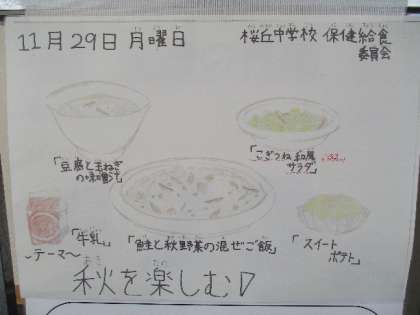 11月29日月曜日
桜丘中学校 保健給食
委員会
「豆腐と玉ねぎ
の味噌汁」
「こぎつね和風
サラダ」
「牛乳」
「鮭と秋野菜の混ぜご飯」
「スイート
ポテト」
～テーマ～
秋を楽しむ